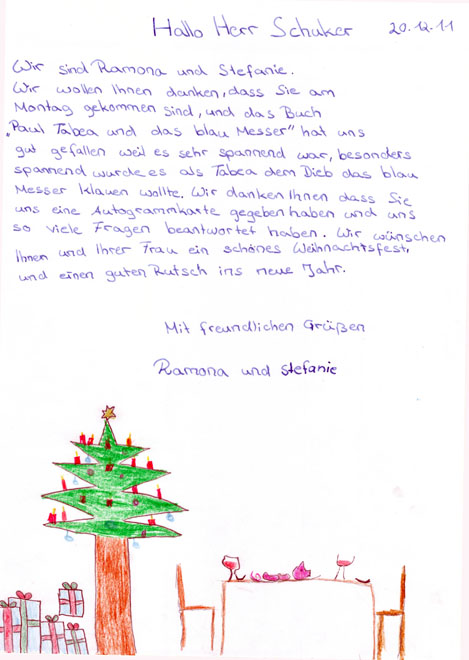 Hallo Herr Schuker 20.12.11
Wir sind Ramona und Stefanie.
Wir wollen Ihnen danken, dass Sie am
Montag gekommen sind, und das Buch
„Paul Tabea und das blau Messer" hat uns
gut gefallen weil es sehr spannend war, besonders
spannend wurde es als Tabea dem Dieb das blau
Messer klauen wollte. Wir danken Ihnen dass Sie
uns eine Autogrammkarte gegeben haben und uns
so viele Fragen beantwortet haben. Wir wünschen
Ihnen und Ihrer Frau ein schönes Weihnachtsfest,
und einen guten Rutsch ins neue Jahr.
Mit freundlichen Grüßen
Ramona und Stefanie